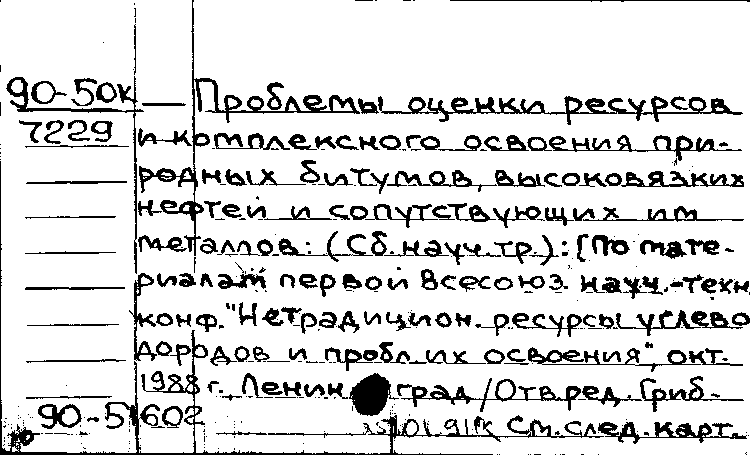 90-50к — Проблемы оценки ресурсов
7229 и комплексного освоения при-
родных битумов, высоковязких
нефтей и сопутствующих им
металлов: (Сб. науч. тр.): [По мате-
риалам первой Всесоюз. науч.-техн
конф. "Нетрадицион. ресурсы углево
дородов и пробл. их освоения", окт.
1988 г., Ленинград / Отв. ред. Гриб-
90-51602
См. след. карт.